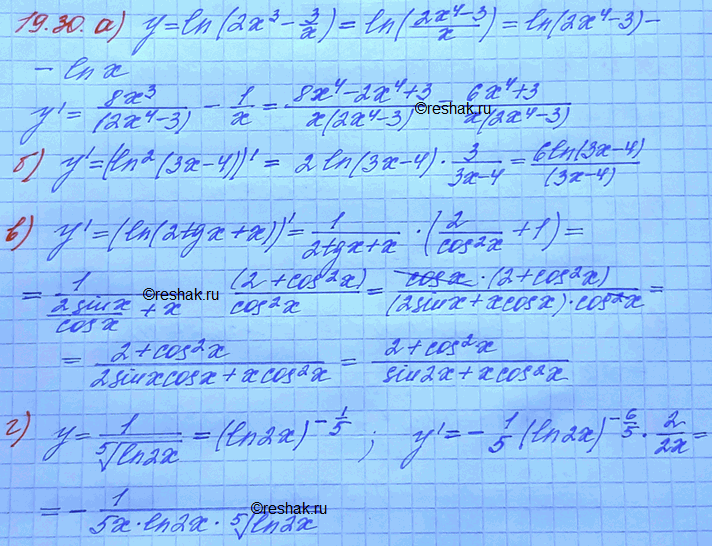 19.30. а) y = ln(2x³ - 3/x) = ln((2x⁴-3)/x) = ln(2x⁴-3) -
- ln x
y' = 8x³/(2x⁴-3) - 1/x = (8x⁴-2x⁴+3)/(x(2x⁴-3)) = (6x⁴+3)/(x(2x⁴-3))
©reshak.ru
б) y' = (ln²(3x-4))' = 2 ln(3x-4) · 3/(3x-4) = 6ln(3x-4)/(3x-4)
в) y' = (ln(2tgx+x))' = 1/(2tgx+x) · (2/cos²x + 1) =
= 1/(2sinx/cosx + x) (2+cos²x)/cos²x = cosx·(2+cos²x)/((2sinx+xcosx)·cos²x) =
©reshak.ru
= (2+cos²x)/(2sinxcosx+xcos²x) = (2+cos²x)/(sin2x+xcos²x)
г) y = 1/⁵√(ln2x) = (ln2x)^(-1/5) ; y' = -1/5 (ln2x)^(-6/5) · 2/2x =
= - 1/(5x·ln2x·⁵√(ln2x))
©reshak.ru